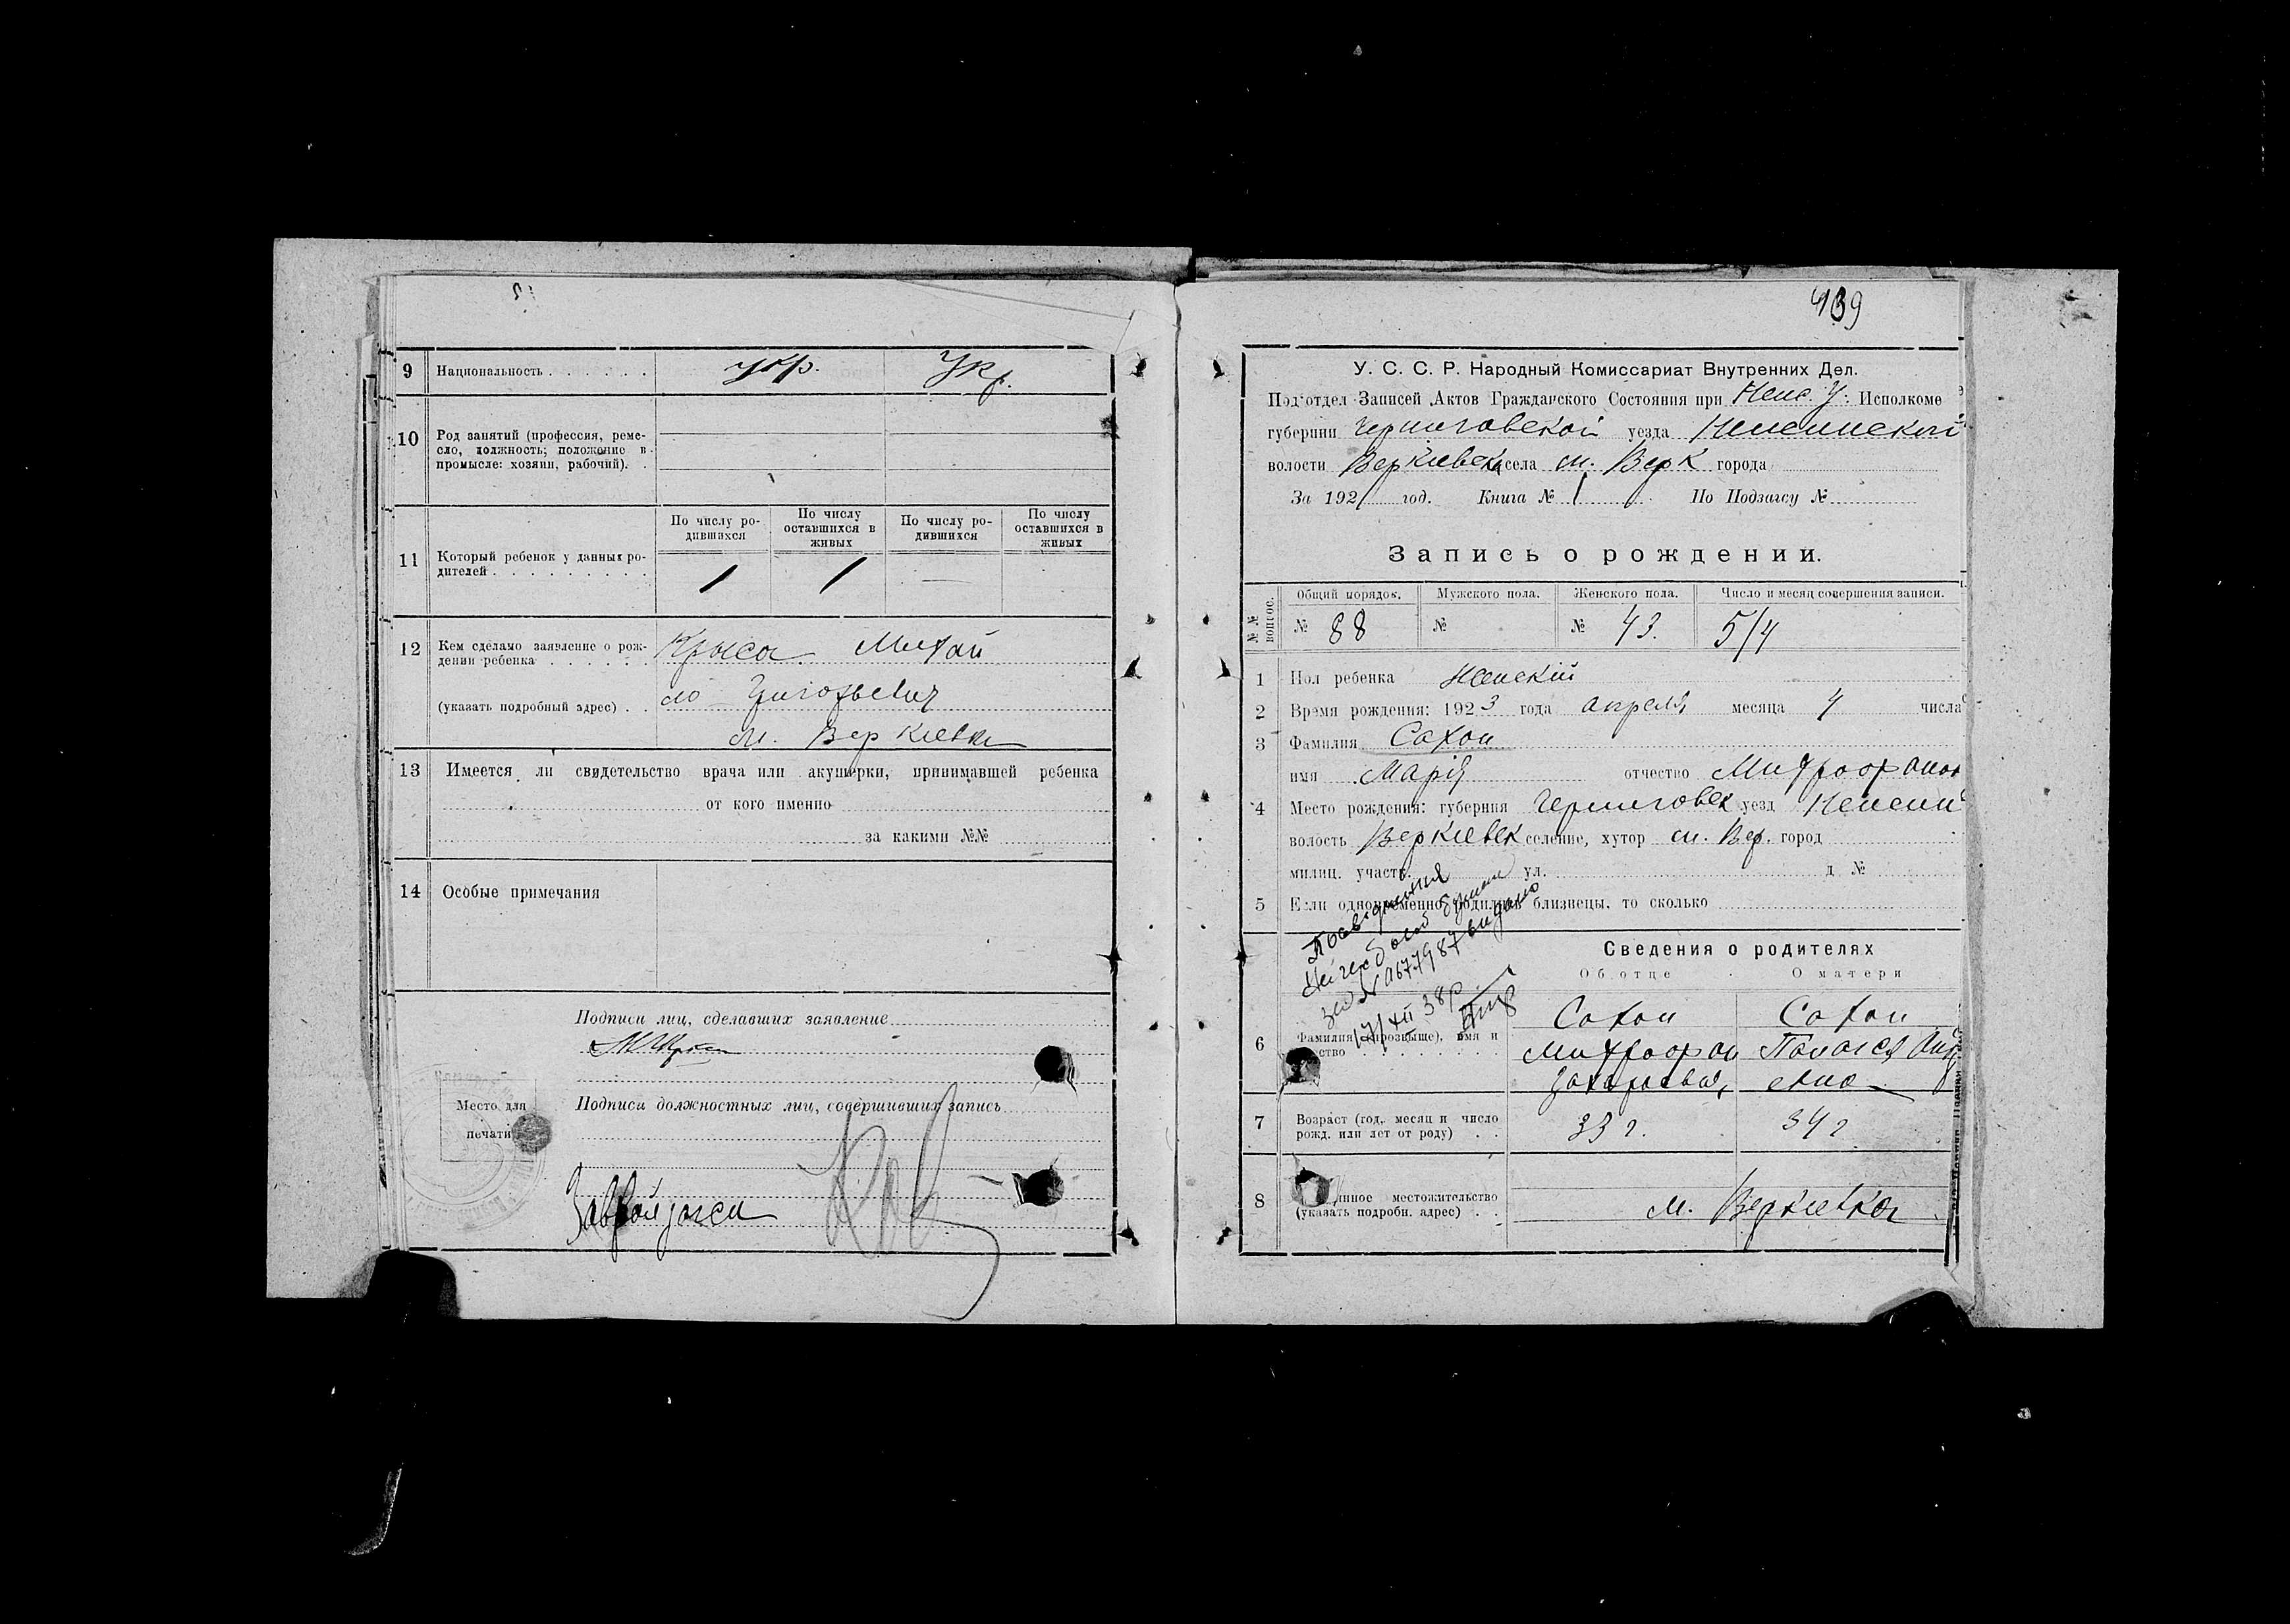 9 Национальность . . . . . . укр. Укр.
10 Род занятий (профессия, реме-
сло, должность; положение в
промысле: хозяин, рабочий). .
По числу ро-
дившихся
По числу
оставшихся в
живых
По числу ро-
дившихся
По числу
оставшихся в
живых
11 Который ребенок у данных ро-
дителей . . . . . . . . . 1 1 —
12 Кем сделано заявление о рож-
дении ребенка . . . . . . Крыса Михай
ло Григорьевич
(указать подробный адрес) . .
м. Веркиевка
13 Имеется ли свидетельство врача или акушерки, принимавшей ребенка
от кого именно
за какими №№
14 Особые примечания
Подписи лиц, сделавших заявление
Место для
печати
Подписи должностных лиц, совершивших запись
439
У. С. С. Р. Народный Комиссариат Внутренних Дел.
Подотдел Записей Актов Гражданского Состояния при Неж. У. Исполкоме
губернии Черниговской уезда Неженской
волости Веркиевск села м. Верк города
За 192 год. Книга № 1 По Подзагсу №
Запись о рождении.
№№ вопрос.
Общий порядок. Мужского пола. Женского пола. Число и месяц совершения записи.
№ 88 № № 43. 5/4
1 Пол ребенка Женский
2 Время рождения: 1923 года апреля месяца 4 числа
3 Фамилия Сахон
имя Марія отчество Митрофанов
4 Место рождения: губерния Черниговск уезд Неженск
волость Веркиевск селение, хутор м. Вер. город
милиц. участк. ул. д №
5 Если одновременно родились близнецы, то сколько
Сведения о родителях
Об отце О матери
17/XII 38 р.
6 Фамилия (прозвище), имя и
отчество . . . . . . . . . Сахон Сахон
Митрофан Палагея Анд
Захарьевич евна
7 Возраст (год, месяц и число
рожд. или лет от роду) . . 33 г. 34 г
8 местожительство
(указать подробн. адрес) . . м. Веркиевка